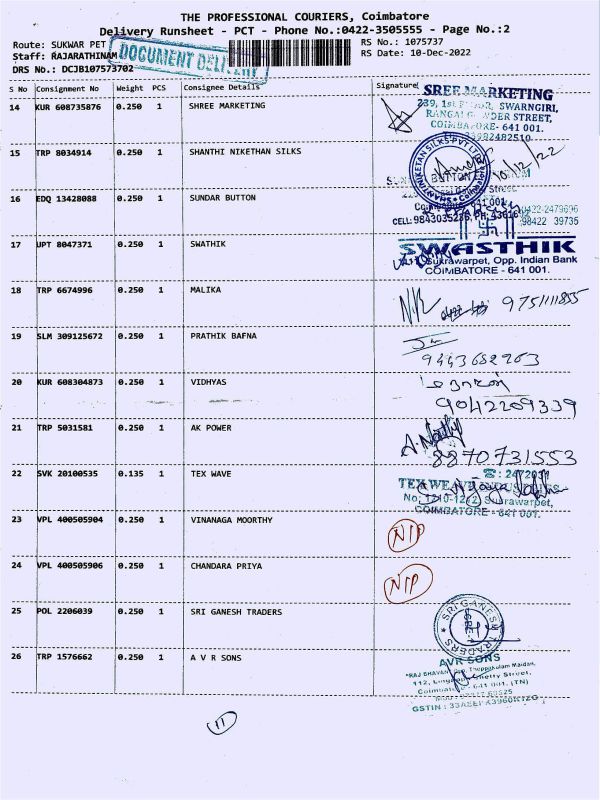 THE PROFESSIONAL COURIERS, Coimbatore
Delivery Runsheet - PCT - Phone No.:0422-3505555 - Page No.:2
Route: SUKWAR PET
RS No.: 1075737
Staff: RAJARATHINAM
RS Date: 10-Dec-2022
DRS No.: DCJB107573702
DOCUMENT
S No Consignment No Weight PCS Consignee Details Signature
14 KUR 608735876 0.250 1 SHREE MARKETING
SREE MARKETING
SWARNGIRI,
STREET,
COIMBATORE- 641 001.
15 TRP 8034914 0.250 1 SHANTHI NIKETHAN SILKS
10/12/22
16 EDQ 13428088 0.250 1 SUNDAR BUTTON
BUTTON
Street
641 001
CELL: 9843035236, PH:
98422 39735
17 UPT 8047371 0.250 1 SWATHIK
SWASTHIK
Sukrawarpet, Opp. Indian Bank
COIMBATORE - 641 001.
18 TRP 6674996 0.250 1 MALIKA
19 SLM 309125672 0.250 1 PRATHIK BAFNA
20 KUR 608304873 0.250 1 VIDHYAS
9042209339
21 TRP 5031581 0.250 1 AK POWER
8870731553
22 SVK 20100535 0.135 1 TEX WAVE
Sukrawarpet,
COIMBATORE - 641 001.
23 VPL 400505904 0.250 1 VINANAGA MOORTHY
24 VPL 400505906 0.250 1 CHANDARA PRIYA
25 POL 2206039 0.250 1 SRI GANESH TRADERS
SRI GANESH TRADERS
26 TRP 1576662 0.250 1 A V R SONS
AVR SONS
"RAJ BHAVAN" Opp. Theppakulam Maidan,
112, Chetty Street,
641 001. (TN)
11